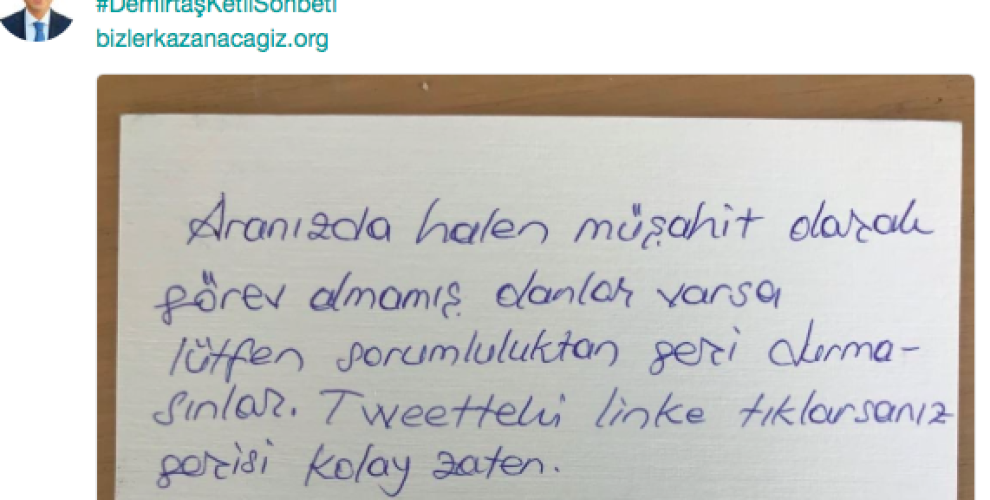 #DemirtaşKetılSohbeti
bizlerkazanacagiz.org
Aranızda halen müşahit olarak
görev almamış olanlar varsa
lütfen sorumluluktan geri durma-
sınlar. Tweetteki linke tıklarsanız
gerisi kolay zaten.